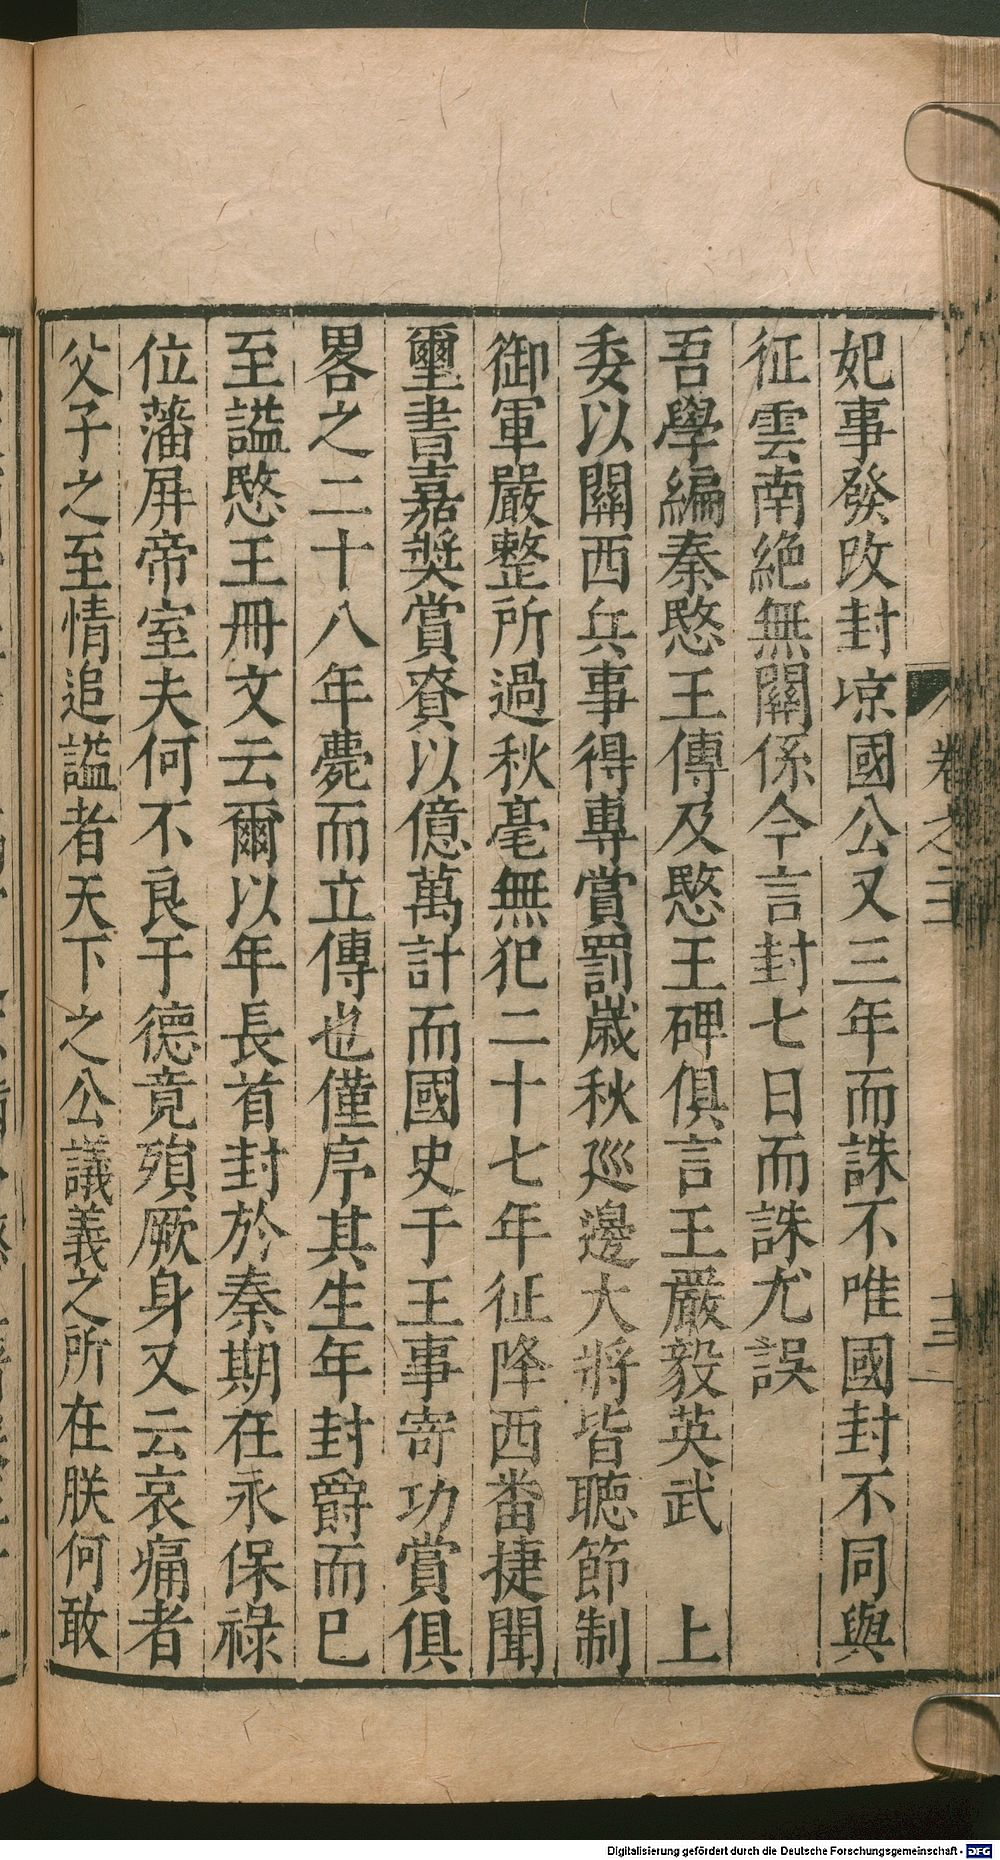 妃事發改封凉國公又三年而誅不唯國封不同與
征雲南絶無關係今言封七日而誅尤誤
吾學編秦愍王傳及愍王碑俱言王嚴毅英武　上
委以關西兵事得專賞罰歲秋廵邊大將皆聽節制
御軍嚴整所過秋毫無犯二十七年征降西番捷聞
璽書嘉奬賞賚以億萬計而國史于王事寄功賞俱
畧之二十八年薨而立傳也僅序其生年封爵而已
至謚愍王冊文云爾以年長首封於秦期在永保祿
位藩屏帝室夫何不良于德竟殞厥身又云哀痛者
父子之至情追謚者天下之公議義之所在朕何敢
卷之二
十三
Digitalisierung gefördert durch die Deutsche Forschungsgemeinschaft - DFG